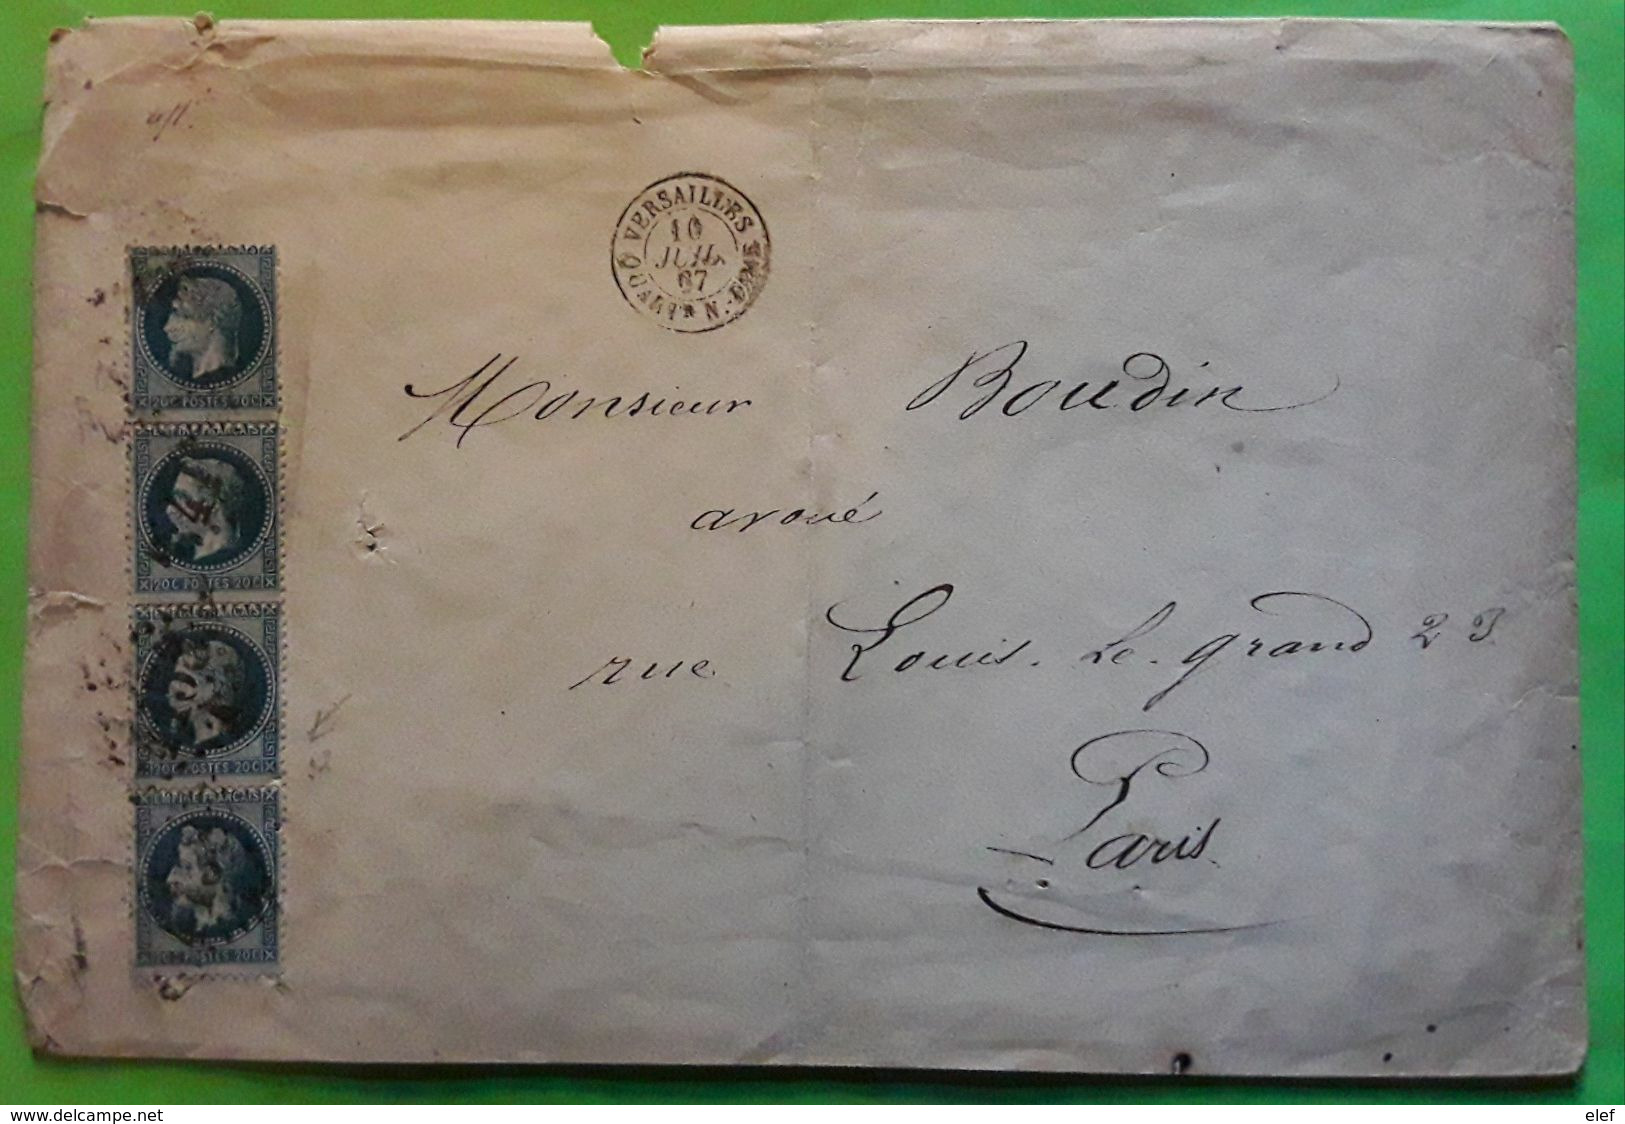 aff.
VERSAILLES
10
JUIL
67
QUART. N.-DAME
Monsieur Boudin
avoué
rue Louis. Le. grand 23
Paris
20C POSTES 20C
EMPIRE FRANÇAIS
20C POSTES 20C
EMPIRE FRANÇAIS
20C POSTES 20C
EMPIRE FRANÇAIS
20C POSTES 20C
www.delcampe.net
elef